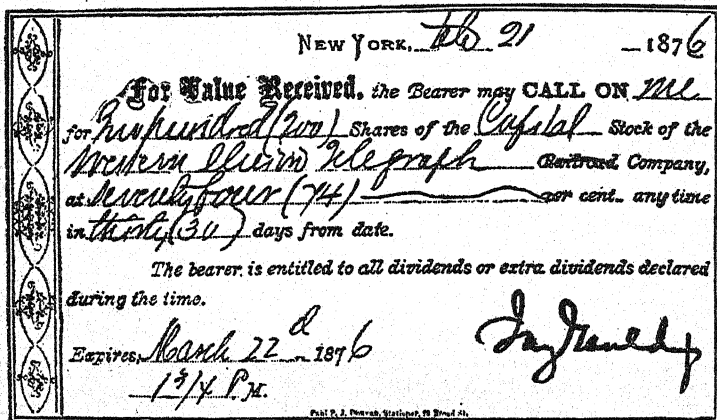 NEW YORK, Feb 21 1876
For Value Received, the Bearer may CALL ON me
for Two hundred (200) Shares of the Capital Stock of the
Western Union Telegraph Railroad Company,
at Seventy four (74) per cent. any time
in thirty (30) days from date.
The bearer is entitled to all dividends or extra dividends declared
during the time.
Expires, March 22 d 1876
1 3/4 P.M.
Jay Gould
Stationer,